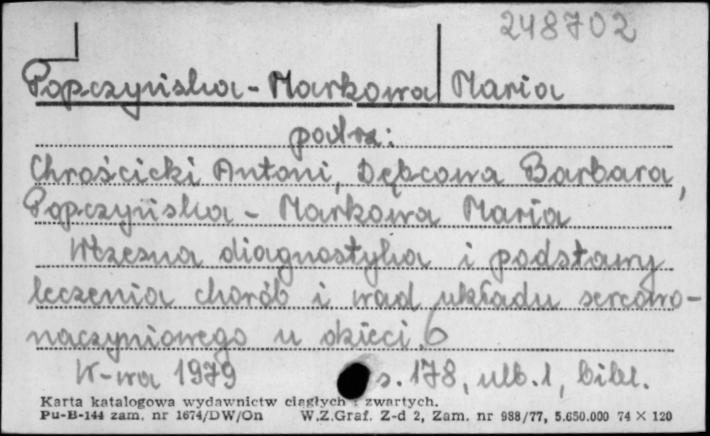 248702
Popczyńska-Markowa Maria
patrz:
Chrościcki Antoni, Dębcowa Barbara,
Popczyńska - Markowa Maria
Wczesna diagnostyka i podstawy
leczenia chorób i wad układu sercowo-
naczyniowego u dzieci.
W-wa 1979 s. 178, nlb. 1, bibl.
Karta katalogowa wydawnictw ciągłych i zwartych.
Pu-B-144 zam. nr 1674/DW/On W.Z.Graf. Z-d 2, Zam. nr 988/77, 5.650.000 74 × 120